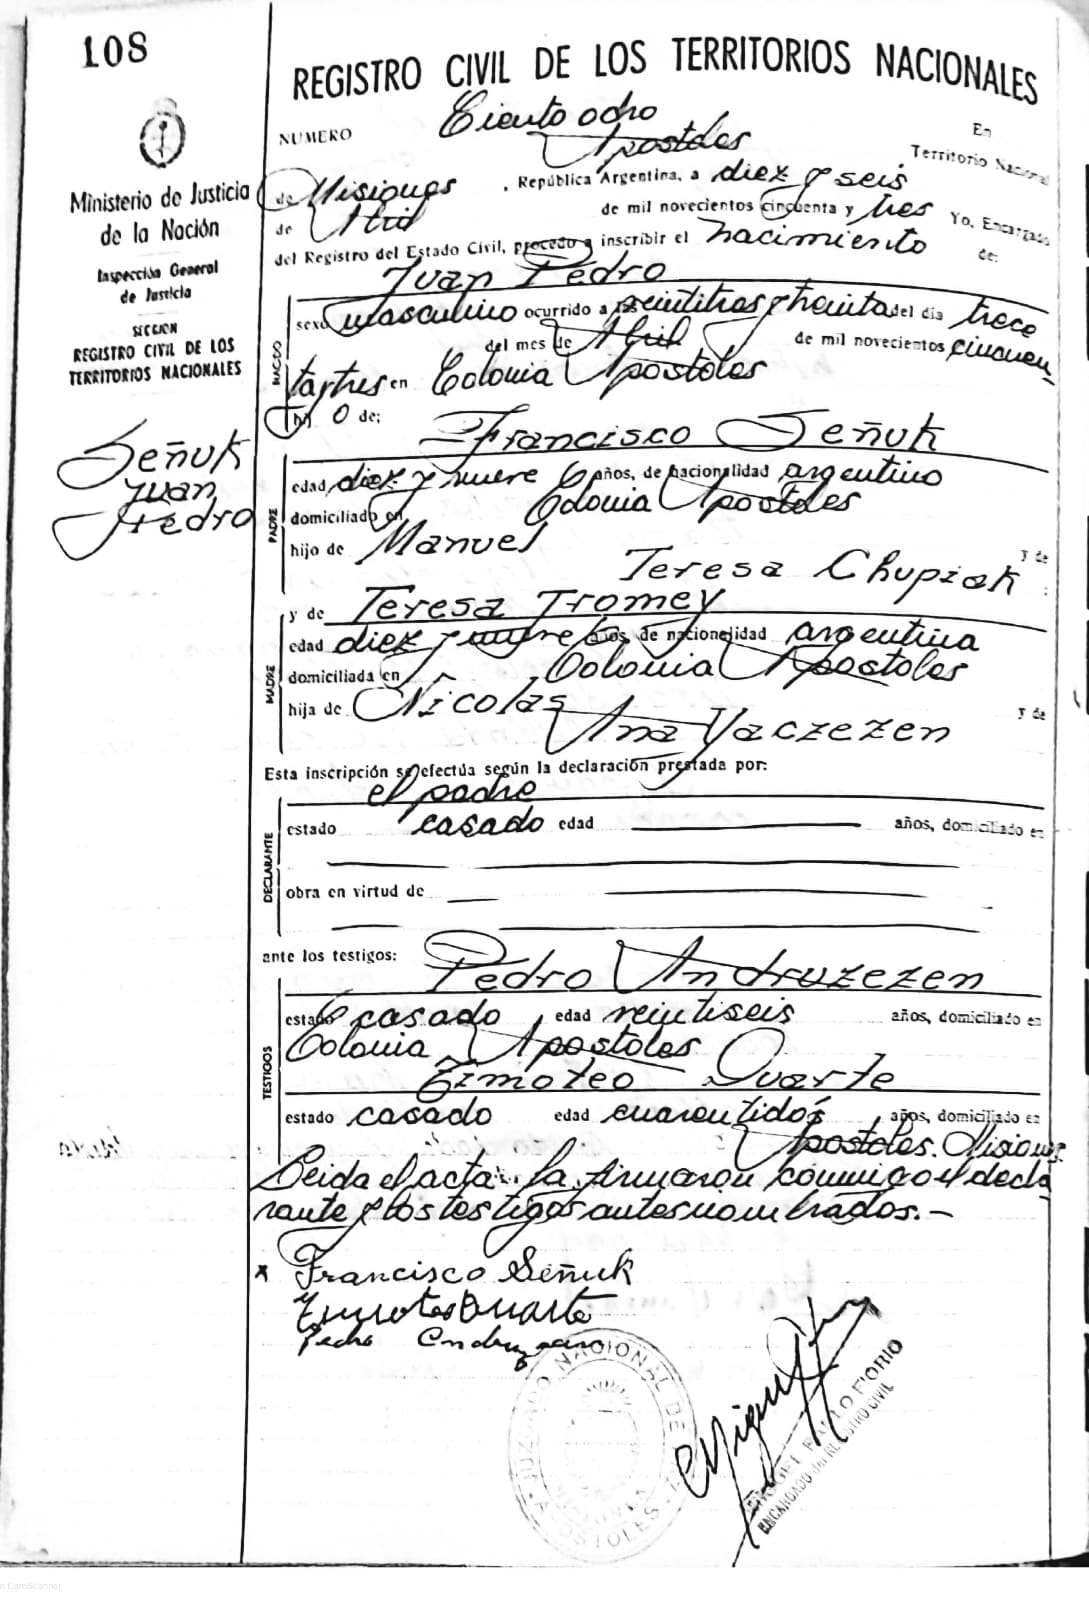 108
REGISTRO CIVIL DE LOS TERRITORIOS NACIONALES
NUMERO Ciento ocho En
Apostoles Territorio Nacional
de Misiones, República Argentina, a diez y seis
de Abril de mil novecientos cincuenta y tres Yo, Encargado
del Registro del Estado Civil, procedo a inscribir el nacimiento de:
Juan Pedro
sexo masculino ocurrido a las veintitres y treinta del día trece
del mes de Abril de mil novecientos cincuen
ta y tres en Colonia Apostoles
hij o de;
NACIDO
Francisco Señuk
edad diez y nueve años, de nacionalidad argentino
domiciliado en Colonia Apostoles
hijo de Manuel y de
Teresa Chupiak :
PADRE
y de Teresa Tromey
edad diez y nueve años, de nacionalidad argentina
domiciliada en Colonia Apostoles
hija de Nicolas y de
Ana Yaczezen
MADRE
Esta inscripción se efectúa según la declaración prestada por:
el padre
estado casado edad años, domiciliado en
obra en virtud de
DECLARANTE
ante los testigos:
Pedro Andruzezen
estado casado, edad veintiseis años, domiciliado en
Colonia Apostoles
Timoteo Duarte
estado casado edad cuarentidós, años, domiciliado en
Apostoles. Misiones
TESTIGOS
Leida el acta: la firmaron conmigo el decla
rante y los testigos antes nombrados.-
x Francisco Señuk
Timoteo Duarte
Pedro
Ministerio de Justicia
de la Nación
Inspección General
de Justicia
SECCION
REGISTRO CIVIL DE LOS
TERRITORIOS NACIONALES
Señuk
Juan
Pedro
JUZGADO NACIONAL DE
APOSTOLES
MISIONES
Miguel
FIORIO
ENCARGADO DEL REGISTRO CIVIL
CamScanner